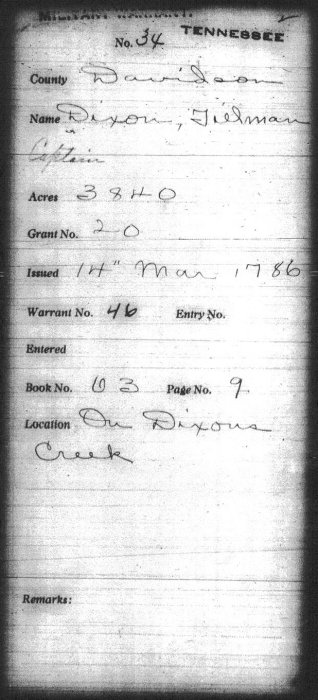 MILITARY WARRANT.
TENNESSEE
No. 34
County Davidson
Name Dixon, Tielman
Captain
Acres 3840
Grant No. 20
Issued 14" Mar 1786
Warrant No. 46 Entry No.
Entered
Book No. 63 Page No. 9
Location On Dixons
Creek
Remarks: